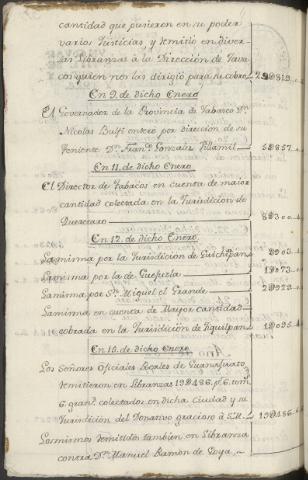 cantidad que pusieron en su poder
varios Justicias, y remitio en diver
sas Libranzas à la Direccion de Taba
cos quien nos las dirigió para su cobro
En 9. de dicho Enero
El Governador de la Provincia de Tabasco Dn.
Nicolas Bulfi enteró por direccion de su
Teniente Dn. Franco. Gonzalez Villamil 5857.
En 11. de dicho Enero
El Director de Tabacos en cuenta de maior
cantidad colectada en la Jurisdicion de
Queretaro 8300.
En 12. de dicho Enero
La misma por la Jurisdicion de
La misma por la de
La misma por Sn. Miguel el Grande
La misma en cuenta de Mayor cantidad
cobrada en la Jurisdicion de Xiquilpan
En 15. de dicho Enero
Los Señores Oficiales Reales de Guanajuato
remitieron en Libranzas 19186. ps. 6. tom.
6 grans. colectados en dicha Ciudad y su
Jurisdicion del Donativo gracioso à S.M.
Los mismos remitidos tambien en Libranza
contra Dn. Manuel Ramon de Goya,